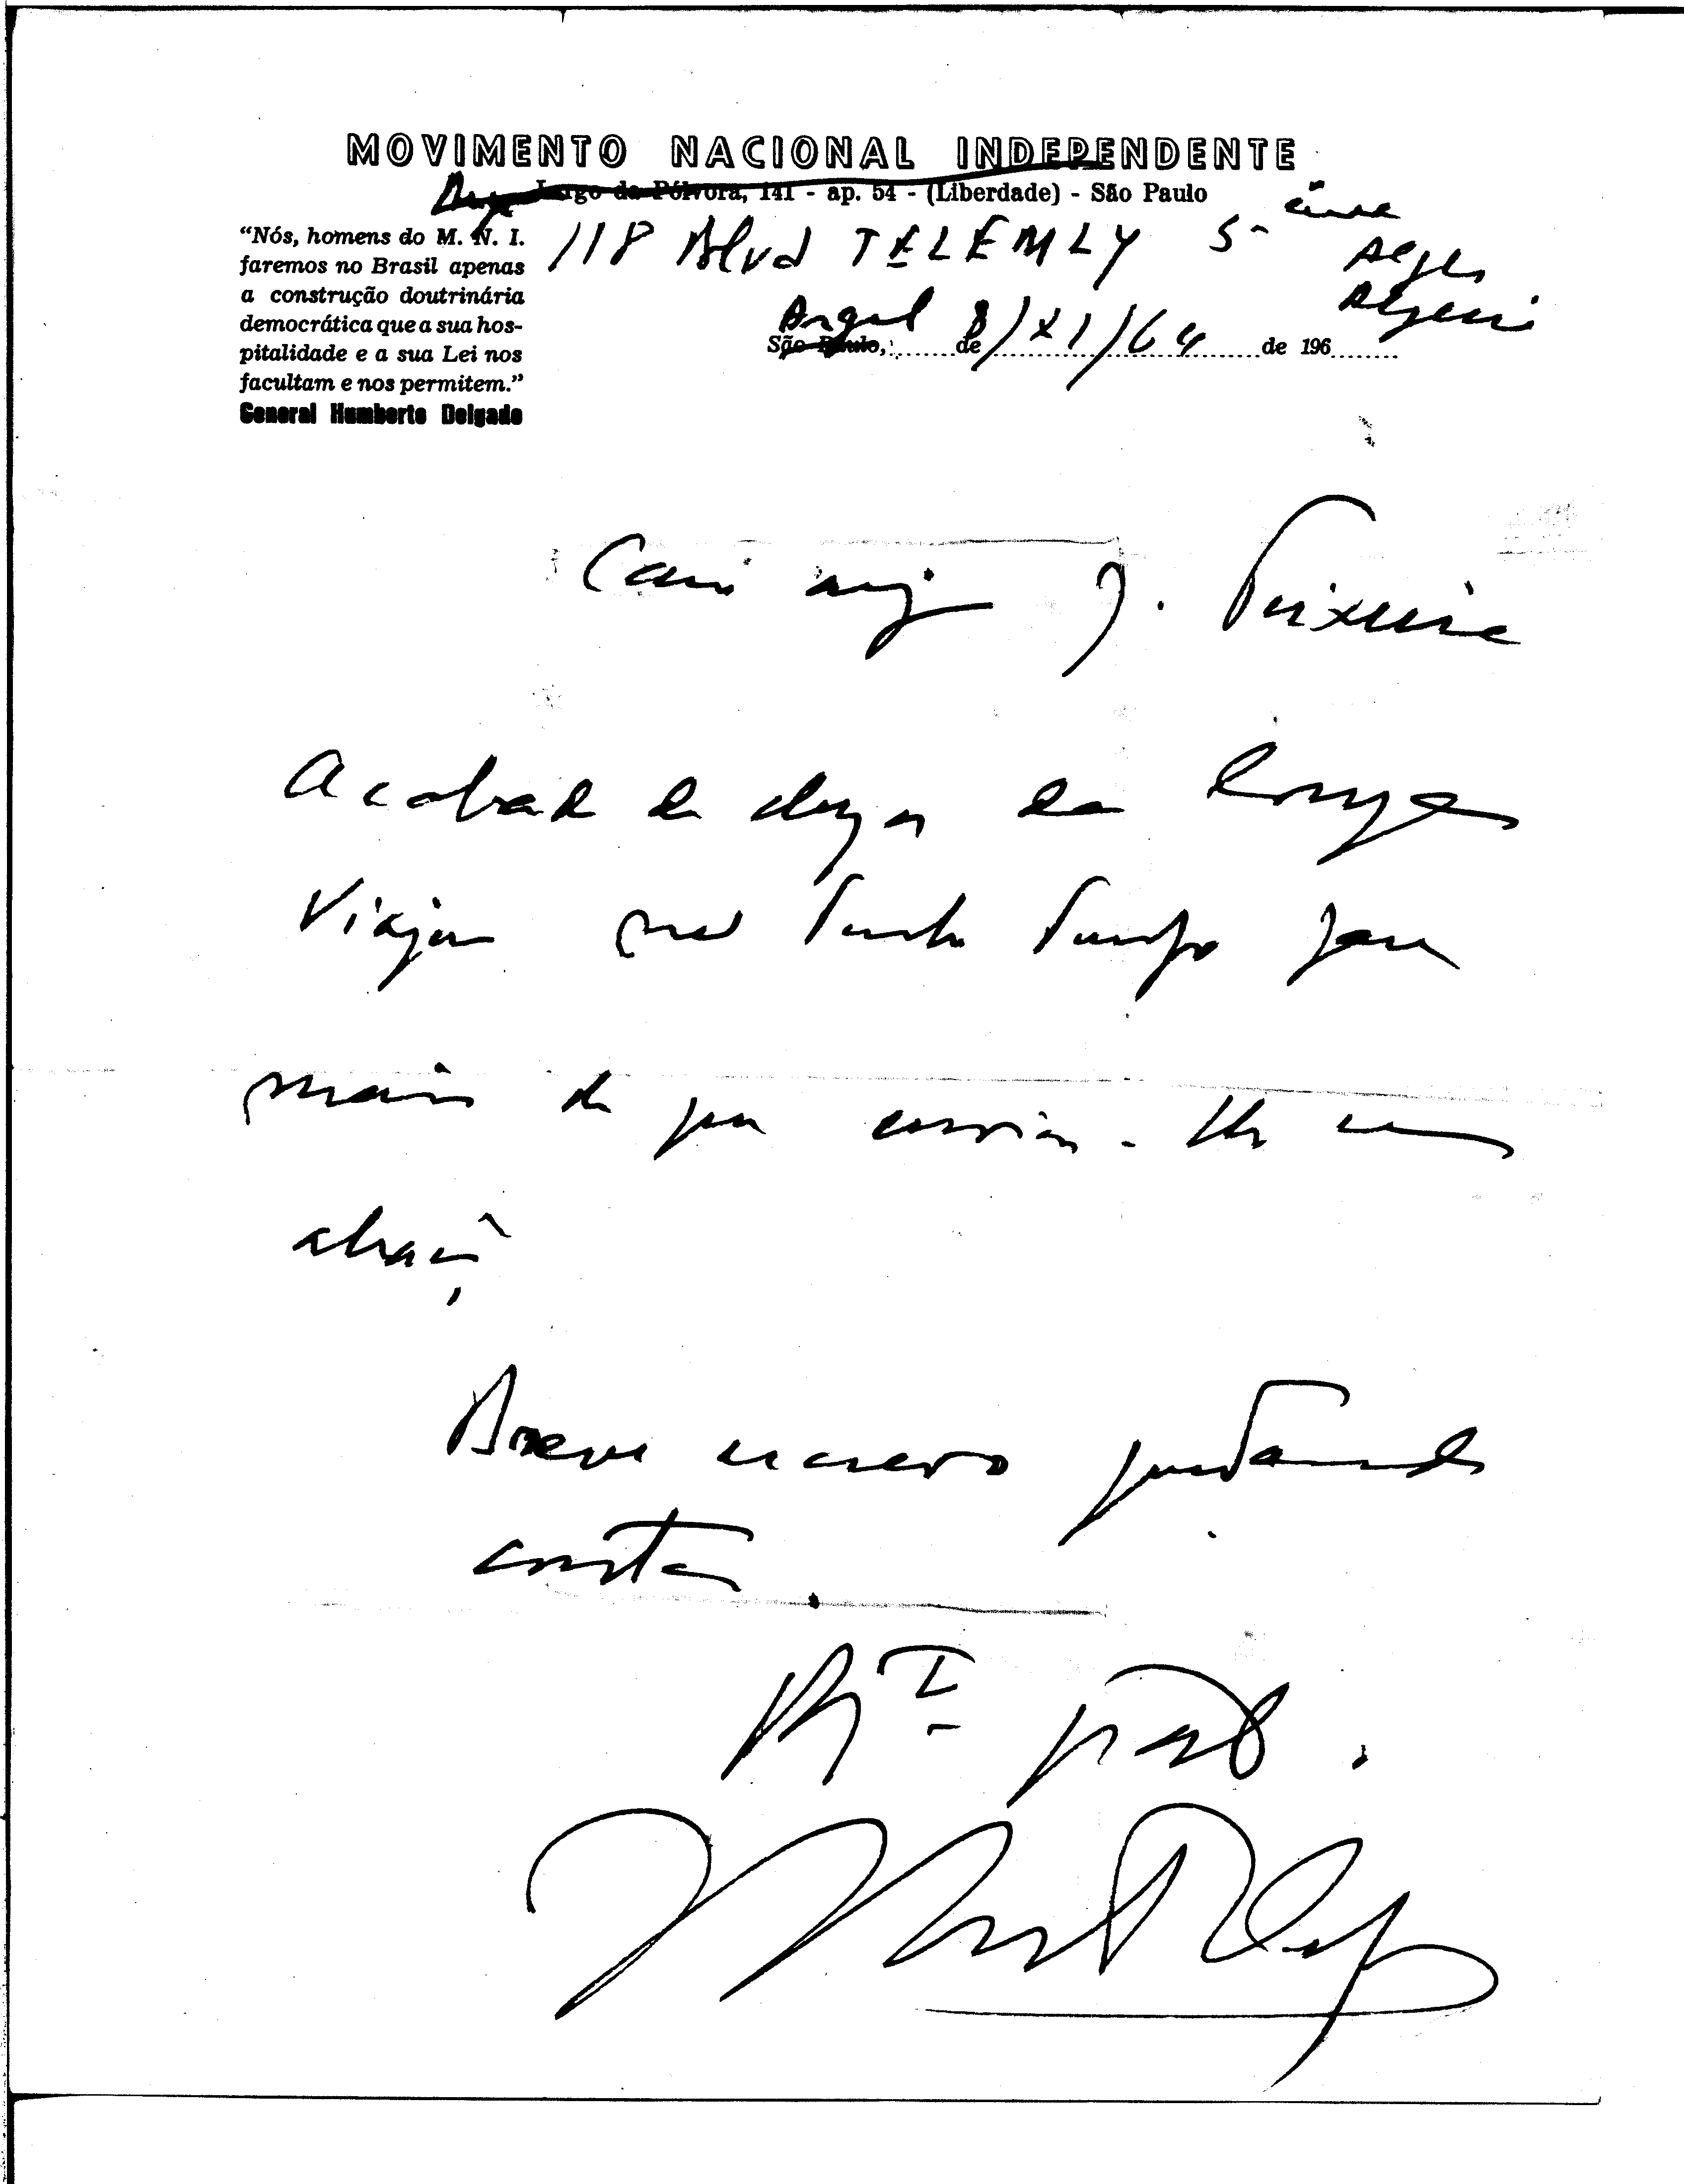 MOVIMENTO NACIONAL INDEPENDENTE
Largo da Pólvora, 141 - ap. 54 - (Liberdade) - São Paulo
118 Blvd TELEMLY 5- ème
Alger
Algerie
“Nós, homens do M. N. I.
faremos no Brasil apenas
a construção doutrinária
democrática que a sua hos-
pitalidade e a sua Lei nos
facultam e nos permitem.”
General Humberto Delgado
Argel 8/XI/64
São Paulo, de de 196
Caro amigo J. Teixeira
Acabado de chegar de longa
viagem não tenho tempo para
mais do que enviar-lhe um
abraço,
Breve escrevo juntando
carta